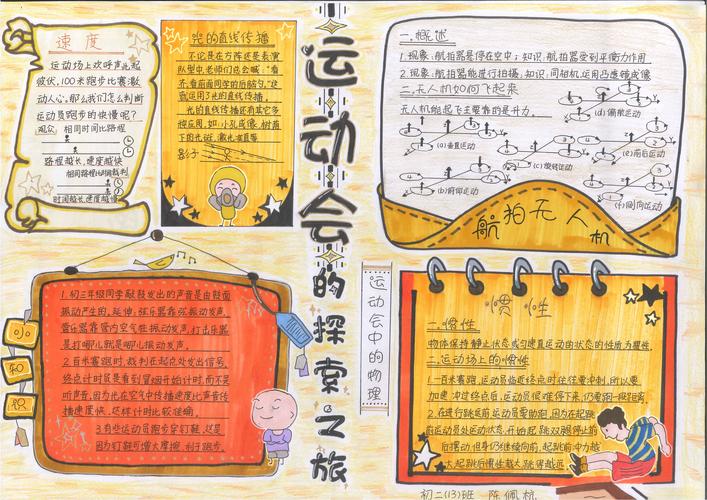 运动会的探索之旅
运动会中的物理
速度
运动场上欢呼声此起
彼伏,100米跑步比赛激
动人心。那么我们怎么判断
运动员跑步的快慢呢?
观众:相同时间比路程
路程越长,速度越快
相同路程比时间裁判
时间越长速度越慢
光的直线传播
不论是在方阵还是表演
队型中,老师们总会喊:“看
齐,看前面同学的后脑勺。”这
就运用了光的直线传播。
光的直线传播还有其它多
种应用,如:小孔成像、树荫下
的光斑、激光准直等
影子
一.概述
1.现象:航拍器是停在空中;知识:航拍器受到平衡力作用
2.现象:航拍器能进行拍摄,知识:同相机,运用凸透镜成像
二.无人机如何飞起来
无人机能起飞主要靠的是升力。
(a)垂直运动
(b)俯仰运动
(c)旋转运动
(d)偏航运动
(e)前后运动
(f)侧向运动
航拍无人机
小知识
1.初三年级同学敲鼓发出的声音是由鼓面
振动产生的,延伸:弦乐器靠弦振动发声,
管乐器靠管内空气柱振动发声,打击乐器
是打哪儿就是哪儿振动发声。
2.百米赛跑时,裁判在起点处发出信号,
终点计时员是看到冒烟开始计时,而不是
听声音,因为光在空气中传播速度比声音传
播速度快。这样计时比较准确。
3.有些运动员跑步穿钉鞋,这是
因为钉鞋可增大摩擦,利于跑步。
惯性
一.惯性
物体保持静止状态或匀速直运动的状态的性质为惯性。
二.运动场上的惯性
1.一百米赛跑,运动员临近终点时往往要冲刺,所以要
加速,冲过终点后,运动员很难停下来,仍要跑一段距离。
2.在进行跳远前运动员要助跑,因为在起跳
前运动员处运动状态,开始起跳双腿停止前
后摆动,但身仍继续向前,起跳前冲力越
大起跳后惯性越大跳得越远
初二(13)班 陈佩